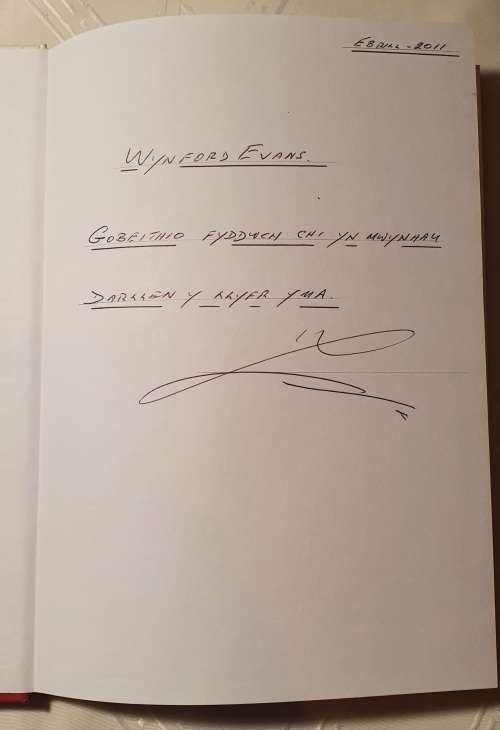 EBRILL - 2011
WYNFORD EVANS.
GOBEITHIO FYDDWCH CHI YN MWYNHAU
DARLLEN Y LLYFR YMA.